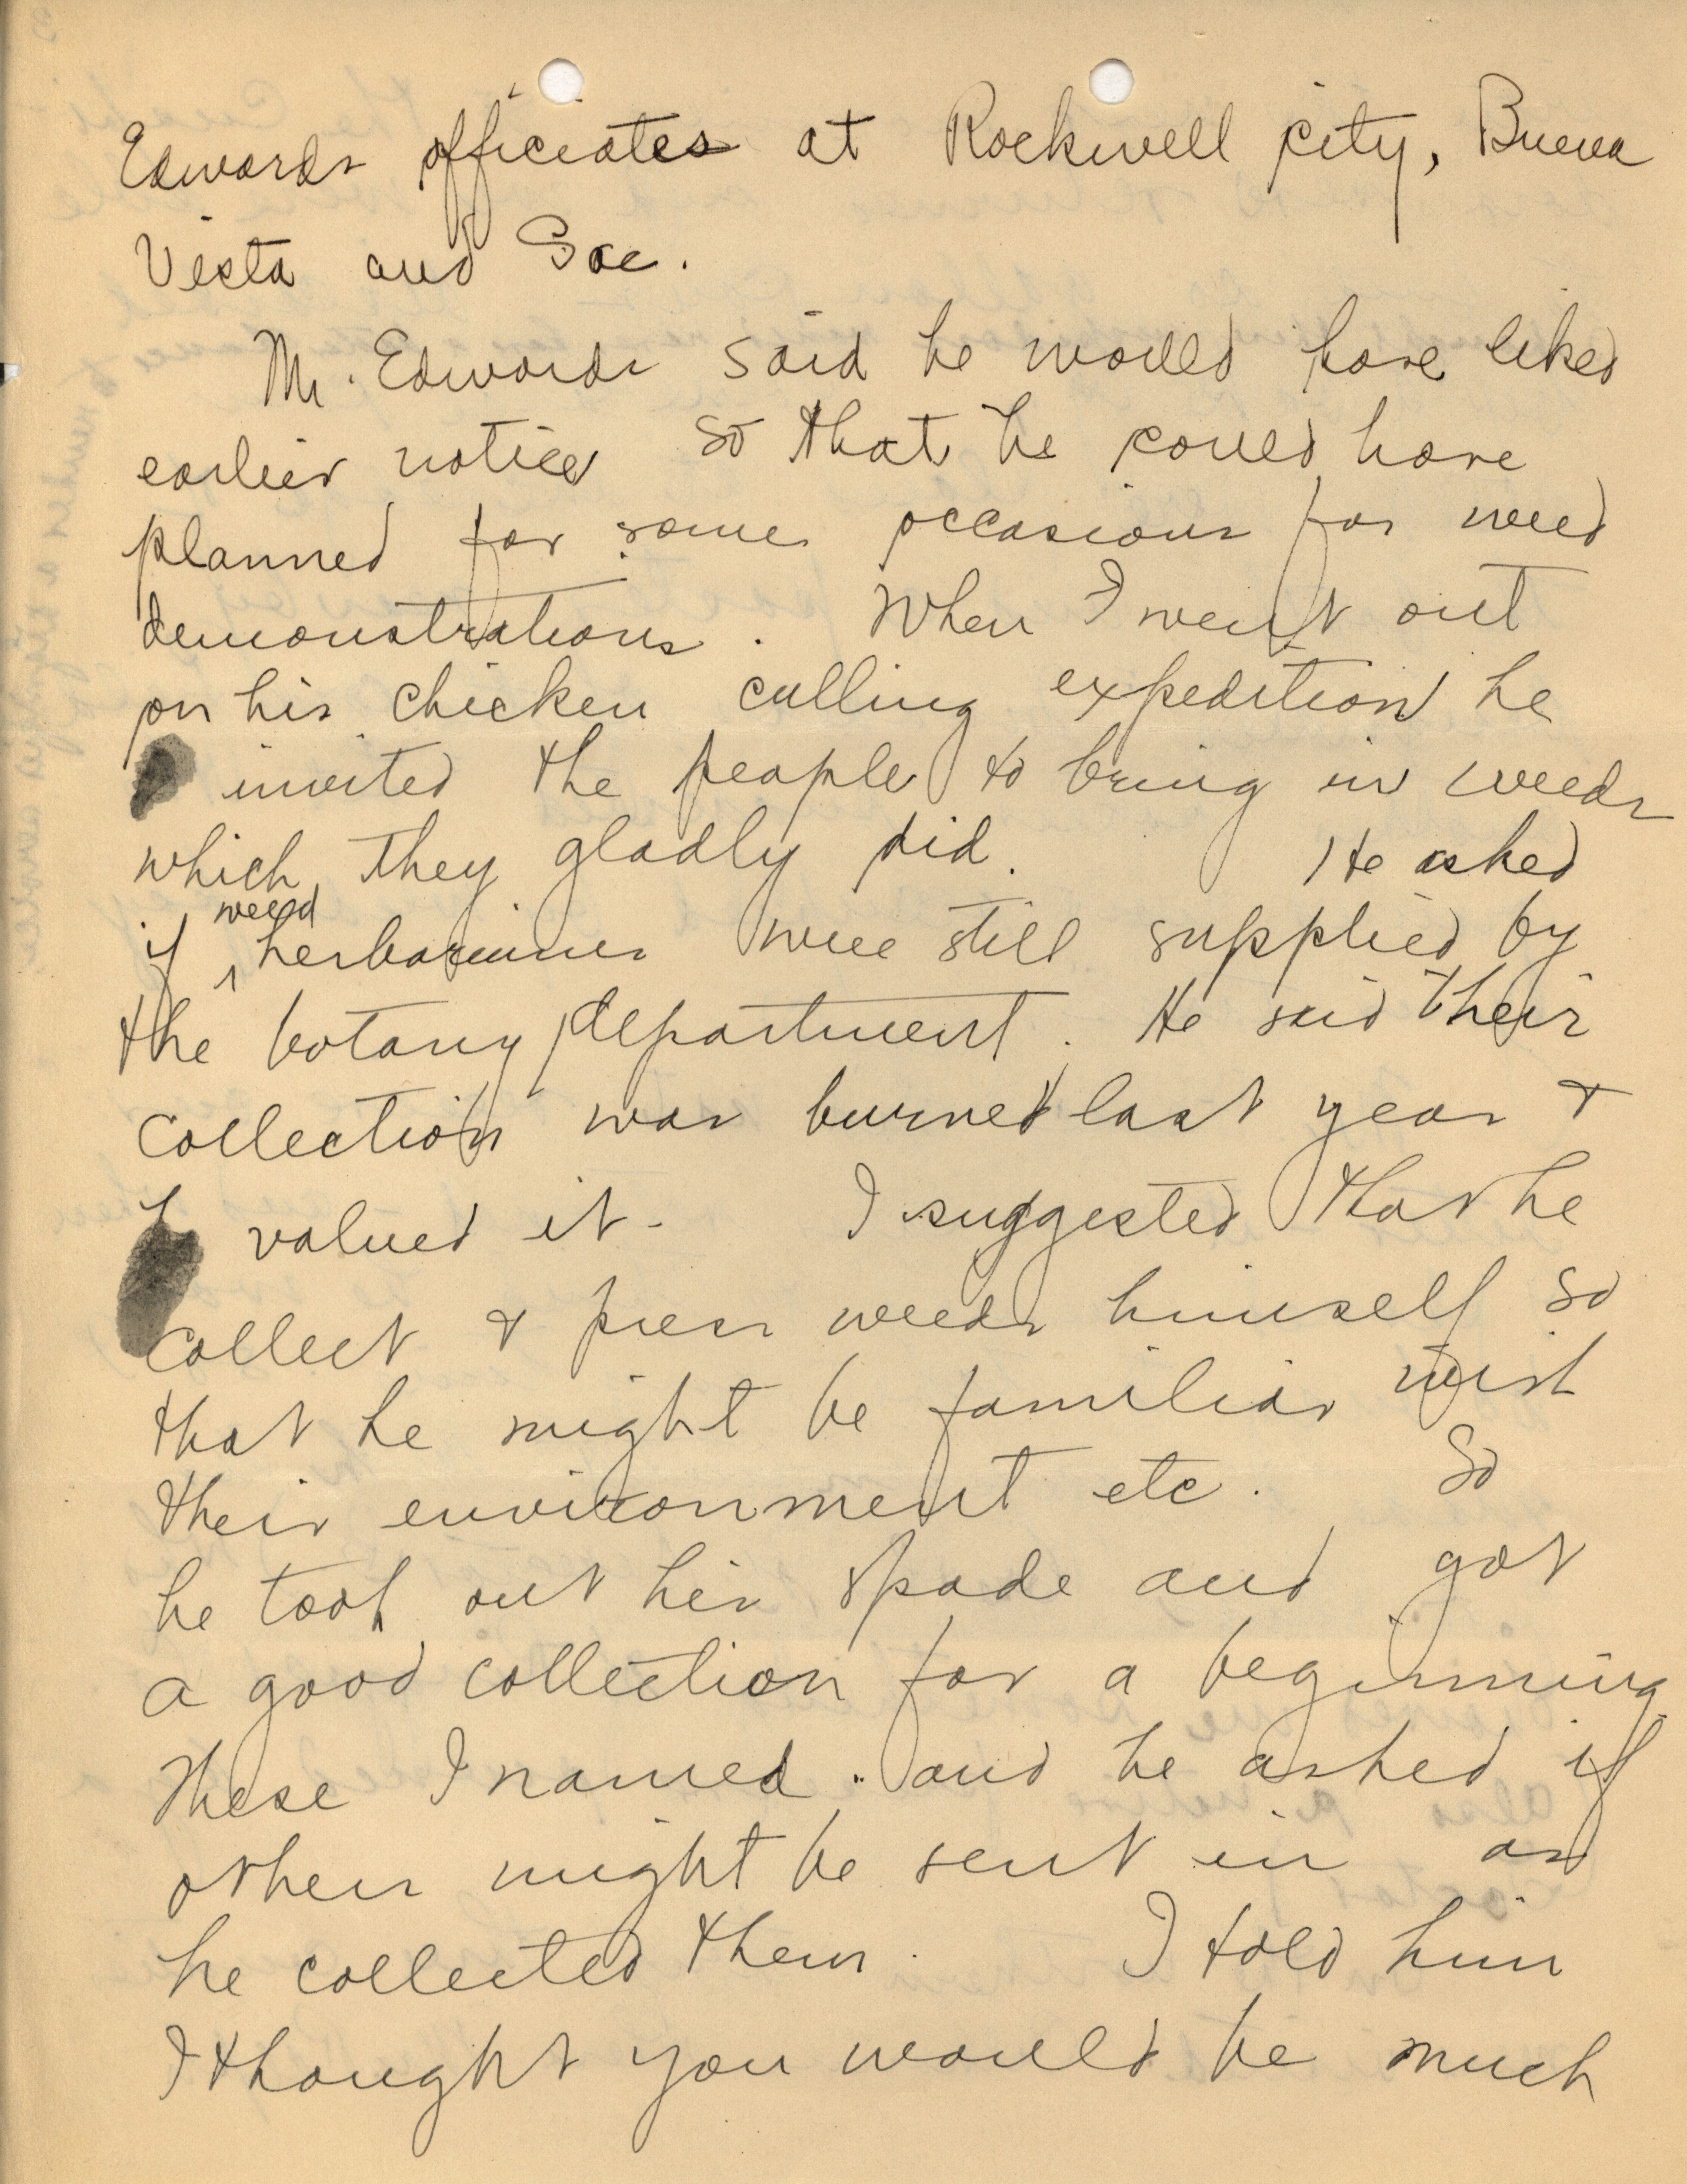 Edwards officiates at Rockwell City, Buena
Vista and Sac.
Mr. Edwards said he would have liked
earlier notice so that he could have
planned for some occasions for weed
demonstrations. When I went out
on his chicken culling expedition he
invited the people to bring in weeds
which they gladly did. He asked
if weed herbariums were still supplied by
the botany department. He said their
collection was burned last year &
valued it. I suggested that he
collect & press weeds himself so
that he might be familiar with
their environment etc. So
he took out his spade and got
a good collection for a beginning
These I named. and he asked if
others might be sent in as
he collected them. I told him
I thought you would be much